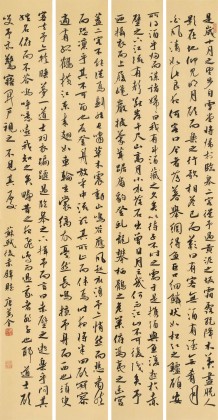 是歲十月之望步自雪堂將歸於臨皋二客從予過黃泥之坂霜露既降木葉盡脫人
影在地仰見明月顧而樂之行歌相答已而歎曰有客無酒有酒無肴月白
風清如此良夜何客曰今者薄暮舉網得魚巨口細鱗狀如松江之鱸顧安
所得酒乎歸而謀諸婦婦曰我有斗酒藏之久矣以待子不時之需於是攜酒與魚復
遊於赤壁之下江流有聲斷岸千尺山高月小水落石出曾日月之幾何而江山不可復識矣予乃攝
衣而上履巉岩披蒙茸踞虎豹登虬龍攀栖鶻之危巢俯馮夷之幽宮蓋
二客不能從焉劃然長嘯草木震動山鳴谷應風起水涌予亦悄然而悲肅然
而恐凜乎其不可留也反而登舟放乎中流聽其所止而休焉時夜將半四顧寂寥
適有孤鶴橫江東來翅如車輪玄裳縞衣戛然長鳴掠予舟而西也須臾
客去予亦就睡夢一道士羽衣蹁躚過臨皋之下揖予而言曰赤壁之遊樂乎問其
姓名俛而不答嗚呼噫嘻我知之矣疇昔之夜飛鳴而過我者非子也耶道士顧
笑予亦驚寤開戶視之不見其處 蘇軾後赤壁賦